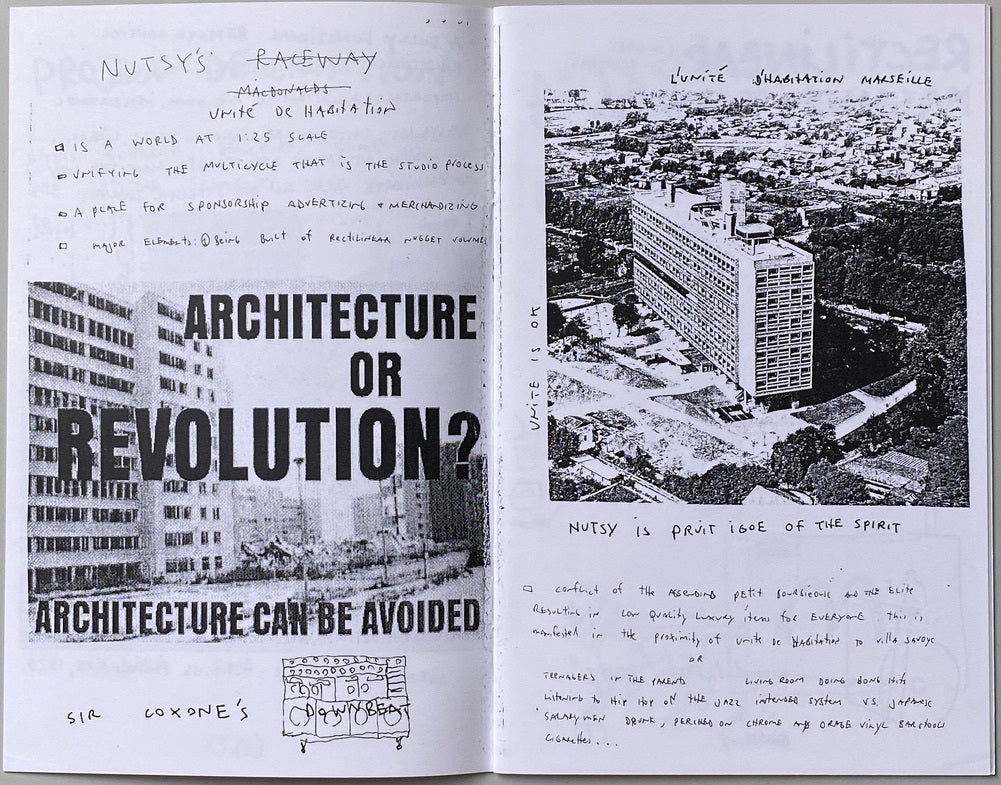 NUTSY'S RACEWAY
MACDONALDS
UNITÉ DE HABITATION
IS A WORLD AT 1:25 SCALE
UNIFYING THE MULTICYCLE THAT IS THE STUDIO PROCESS
A PLACE FOR SPONSORSHIP ADVERTIZING + MERCHANDIZING
MAJOR ELEMENTS: ① BEING BUILT OF RECTILINEAR NUGGET VOLUME
ARCHITECTURE
OR
REVOLUTION?
ARCHITECTURE CAN BE AVOIDED
SIR COXONE'S DOWNBEAT
L'UNITÉ D'HABITATION MARSEILLE
UNITE IS OK
NUTSY IS PRUIT IGOE OF THE SPIRIT
CONFLICT OF THE ASCENDING PETIT BOURGIEOUIC AND THE ELITE
RESULTING IN LOW QUALITY LUXURY ITEMS FOR EVERYONE. THIS IS
MANIFESTED IN THE PROXIMITY OF UNITE DE HABITATION TO VILLA SAVOYE
OR
TEENAGERS IN THE PARENTS LIVING ROOM DOING BONG HITS
LISTENING TO HIP HOP ON THE JAZZ INTENDED SYSTEM VS. JAPANESE
SALARYMEN DRUNK, PERCHED ON CHROME AND ORAGE VINYL BARSTOOLS
CIGARETTES...